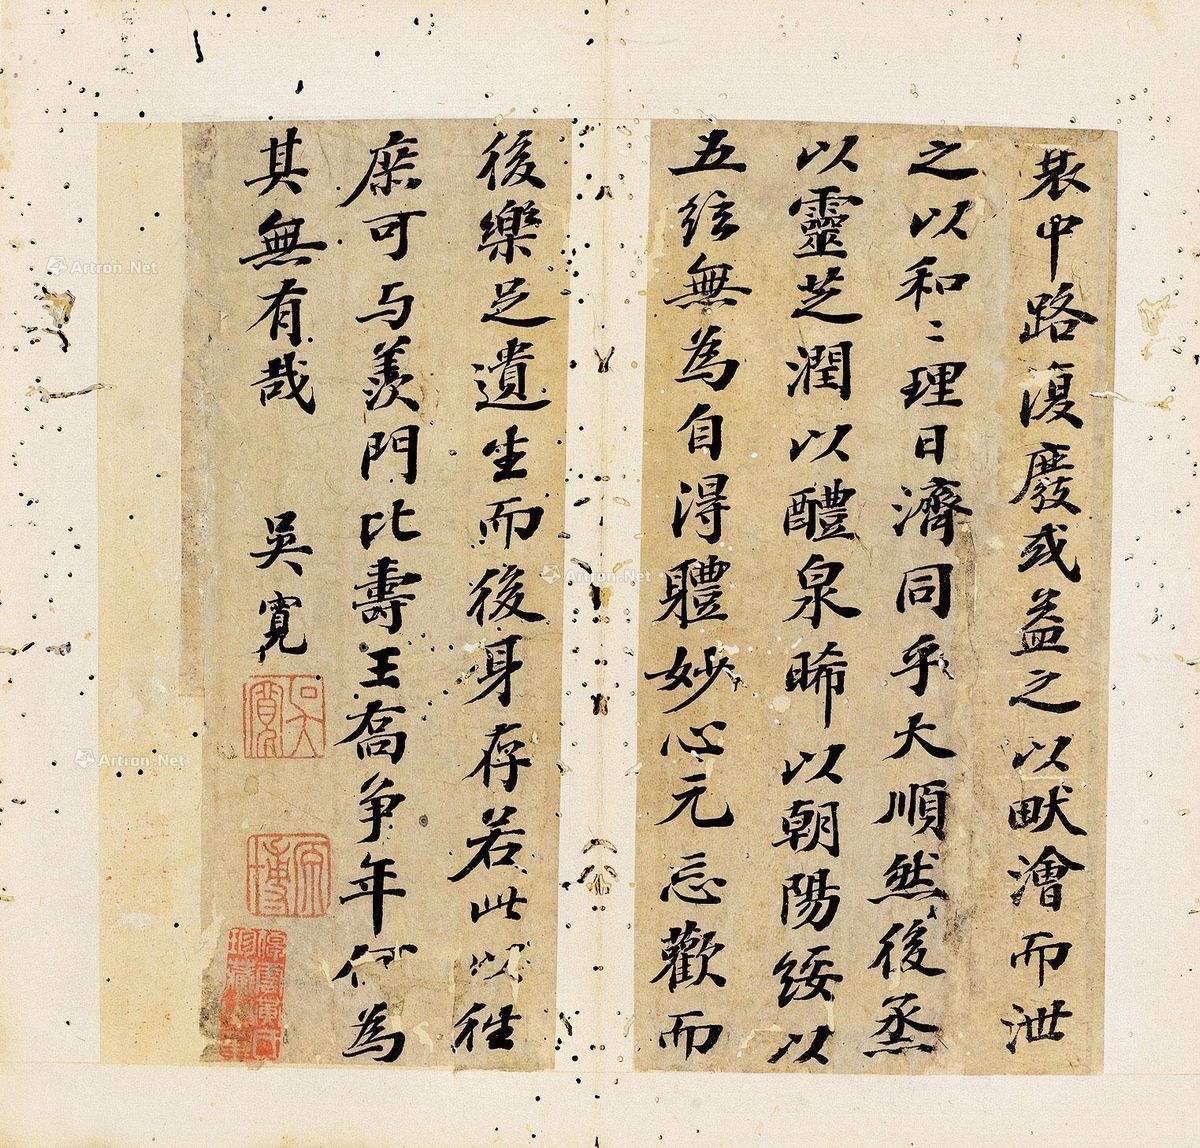 裝中路復廢或益之以畎澮而泄
之以和〻理日濟同乎大順然後蒸
以靈芝潤以醴泉晞以朝陽綏以
五弦無為自得體妙心元忘歡而
後樂足遺生而後身存若此以往
庶可与羨門比壽王喬争年何為
其無有哉
吳寬
吳寬
原博
Artron.Net
Artron.Net
Artron.Net